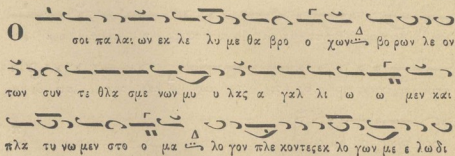 Ο σοι πα λαι ων εκ λε λυ με θα βρο ο χων Δ βο ρων λε ον
των συν τε θλα σμε νων μυ υ λας α γαλ λι ω ω μεν και
πλα τυ νω μεν στο ο μα Δ λο γον πλε κοντεςεκ λο γων με ε λω δι